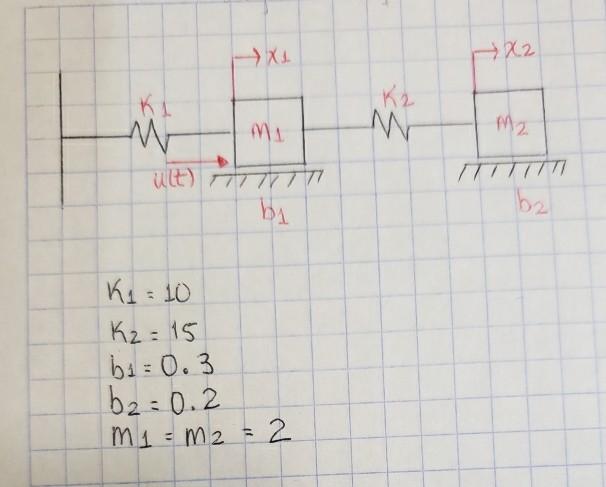 x1
x2
K1
K2
m1
m2
u(t)
b1
b2
K1 = 10
K2 = 15
b1 = 0.3
b2 = 0.2
m1 = m2 = 2